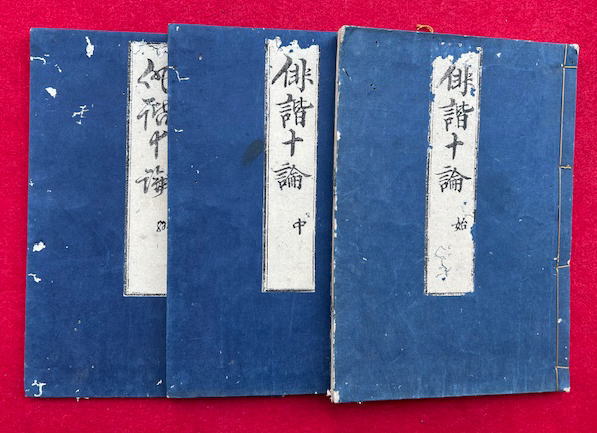 俳諧十論 始
俳諧十論 中
俳諧十論